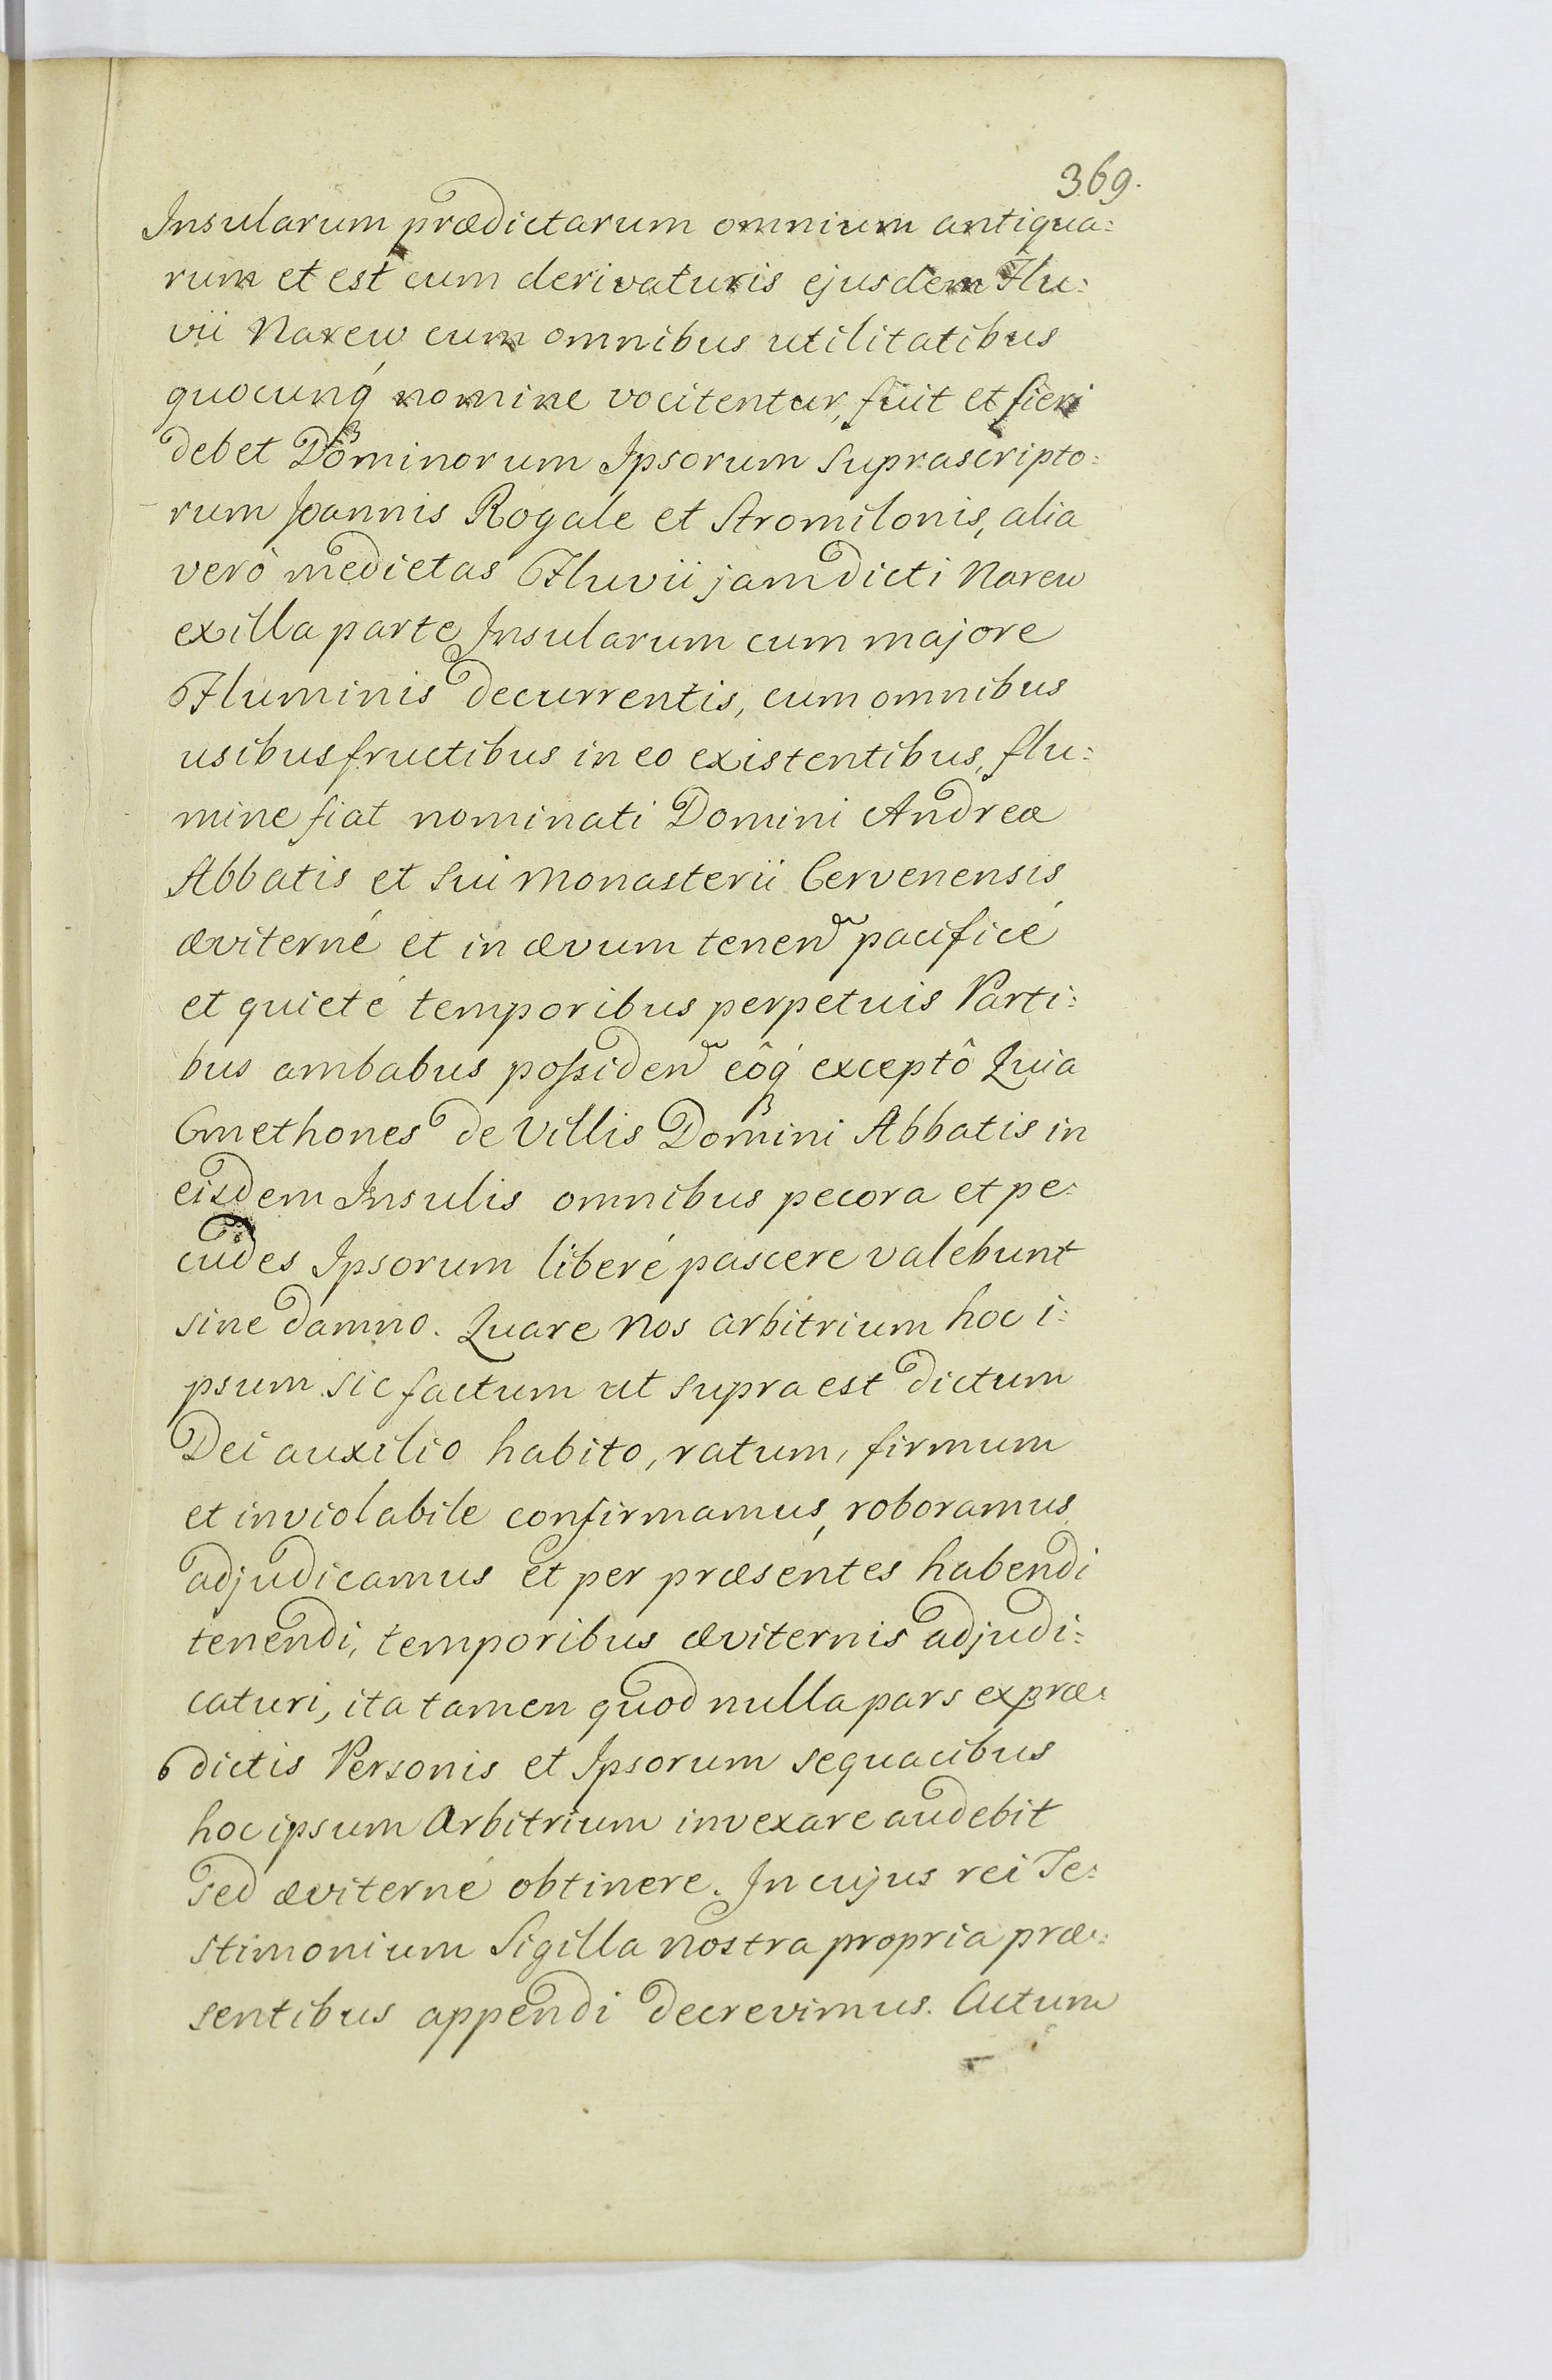 369.
Insularum prædictarum omnium antiqua:
rum et est cum derivaturis ejusdem Flu:
vii Narew cum omnibus utilitatibus
quocunq́ nomine vocitentur, fuit et fieri
debet Dominorum Ipsorum suprascripto:
rum Joannis Rogale et Stromilonis, alia
verò medietas Fluvii jamdicti Narew
ex illa parte Insularum cum majore
Fluminis decurrentis, cum omnibus
usibusfructibus in eo existentibus, flu:
mine fiat nominati Domini Andreæ
Abbatis et sui Monasterii Cervenensis
æviterné et in ævum tenend pacificé
et quieté temporibus perpetuis Parti:
bus ambabus possidend eôq́ exceptô Quia
Cmethones de Villis Domini Abbatis in
eisdem Insulis omnibus pecora et pe:
cudes Ipsorum liberé pascere valebunt
sine damno. Quare Nos arbitrium hoc i:
psum sic factum ut supra est dictum
Dei auxilio habito, ratum, firmum
et inviolabile confirmamus, roboramus
adjudicamus et per præsentes habendi
tenendi, temporibus æviternis adjudi:
caturi, ita tamen quod nulla pars ex præ:
dictis Personis et Ipsorum sequacibus
hoc ipsum Arbitrium invexare audebit
sed æviterné obtinere. In cujus rei Te:
stimonium Sigilla nostra propria præ:
sentibus appendi decrevimus. Actum